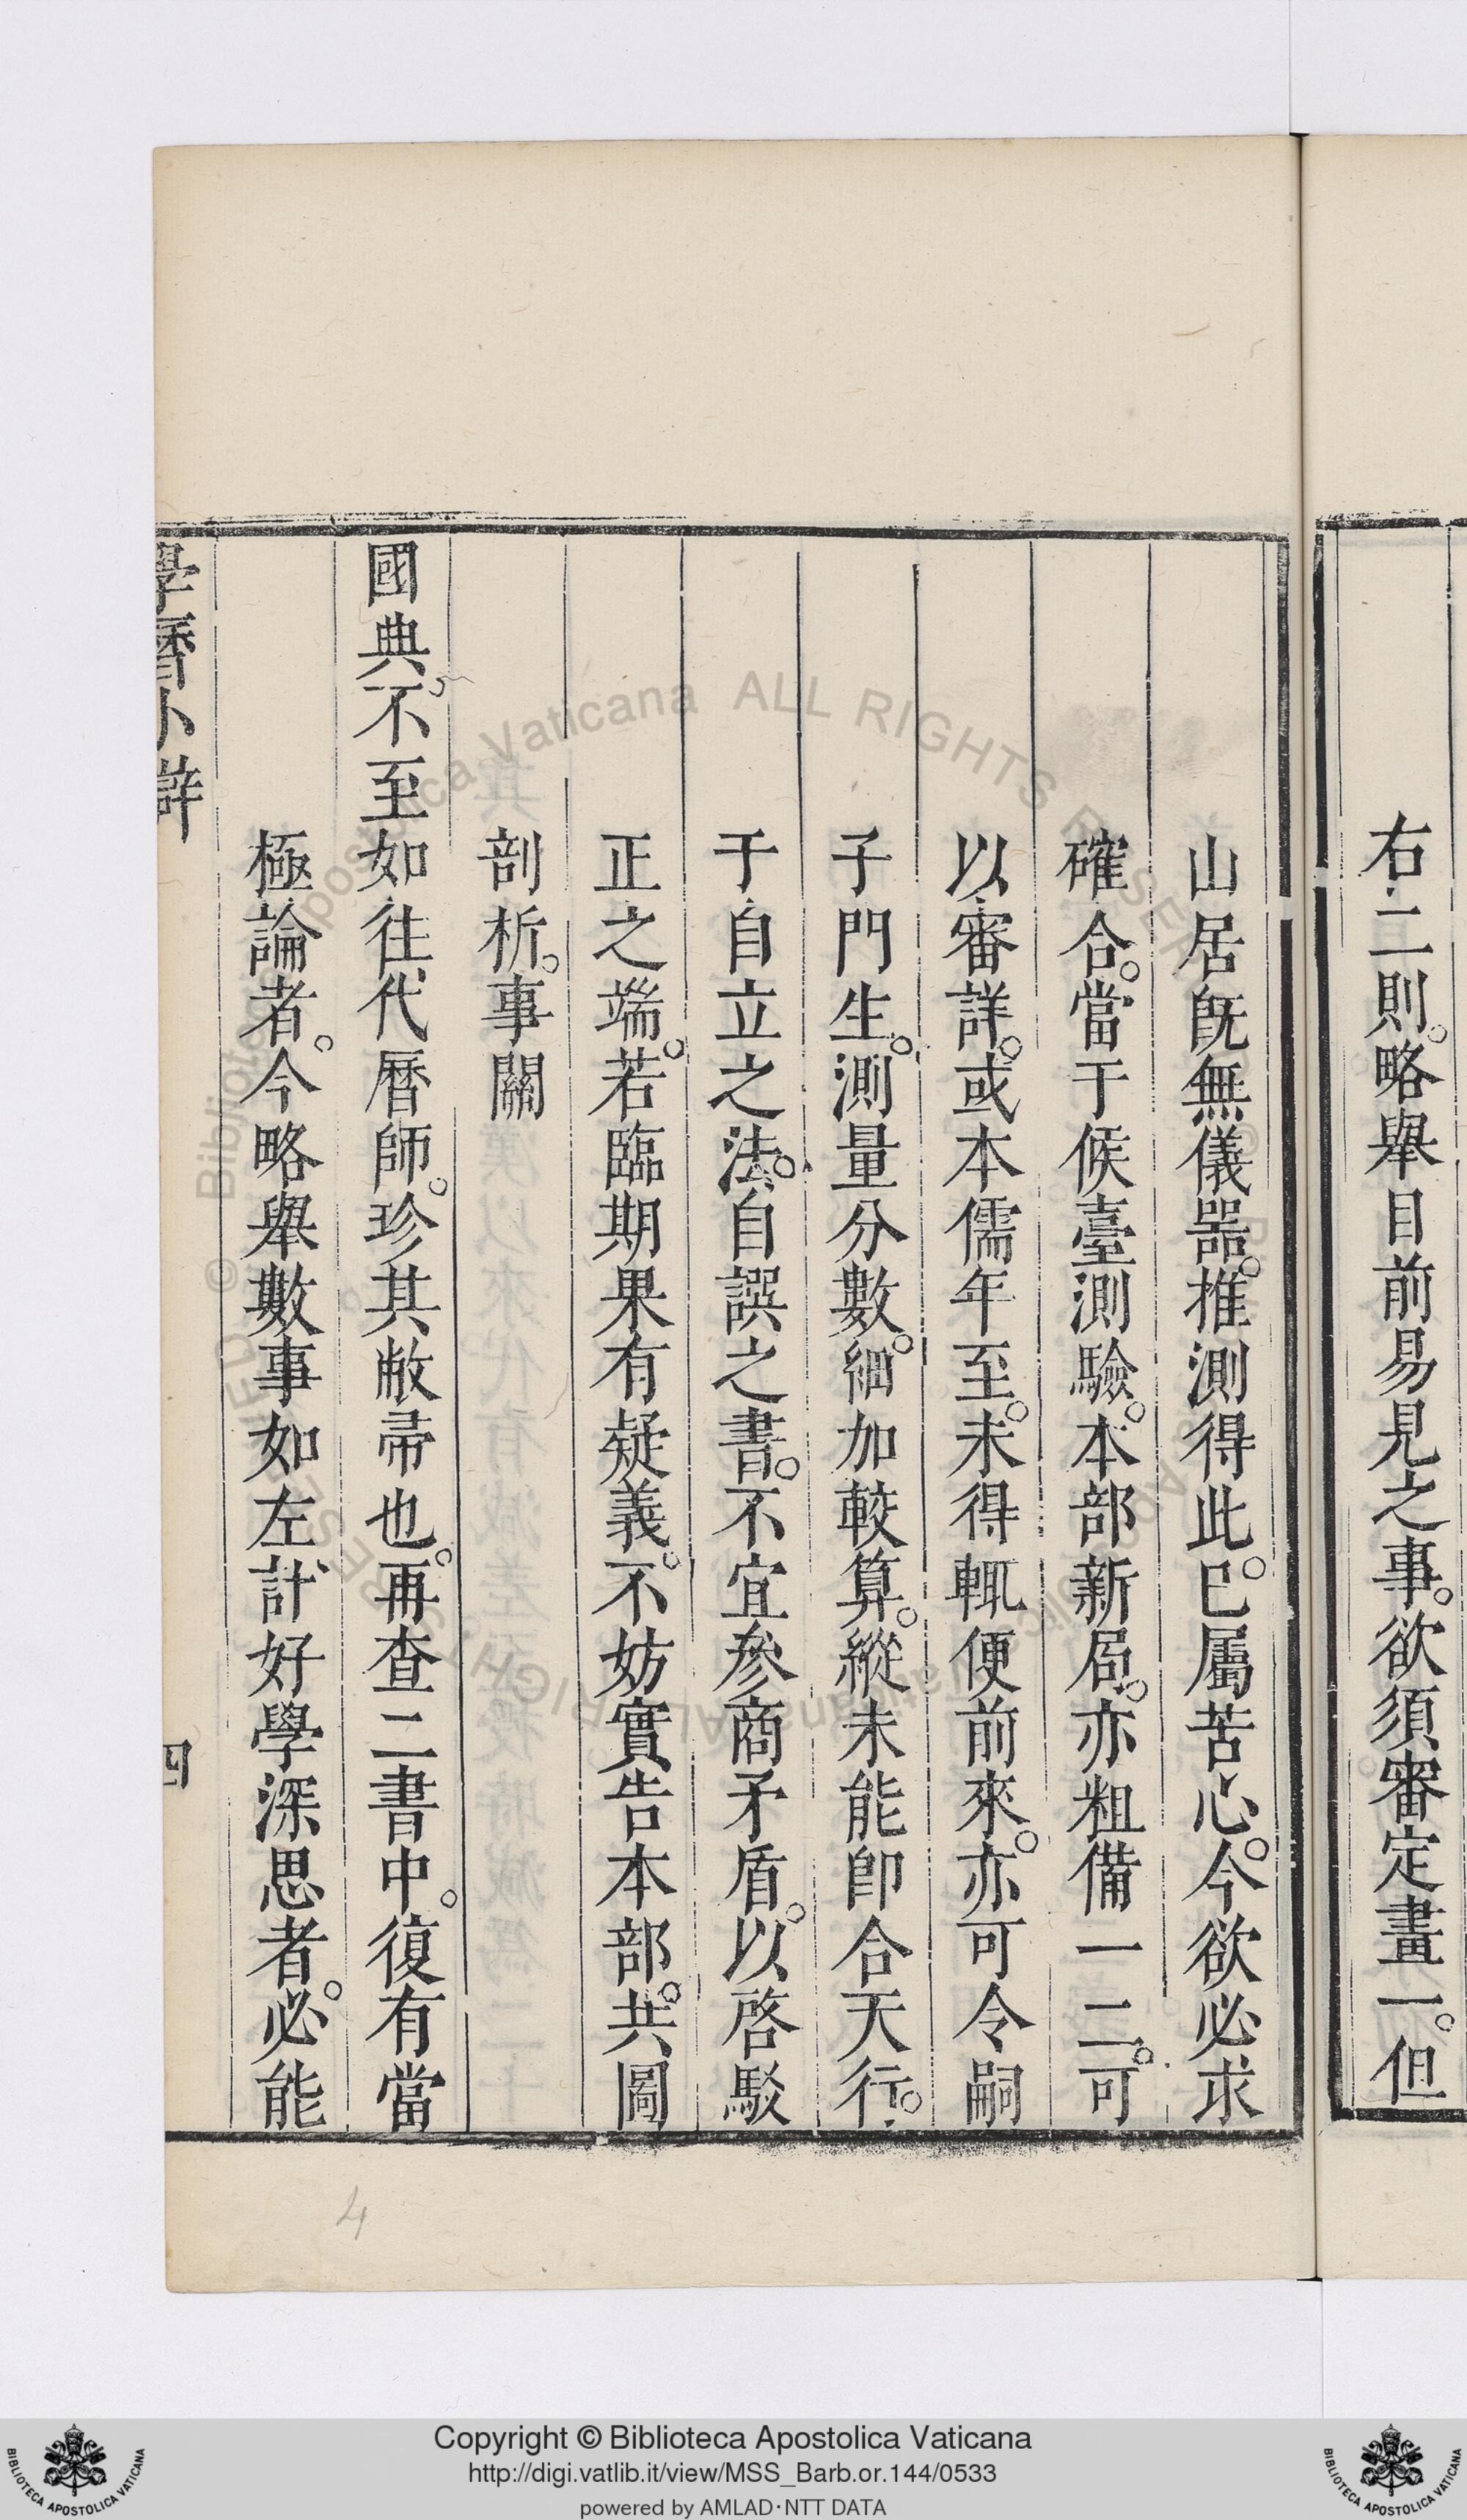 右二則。略舉目前易見之事。欲須審定畫一。但
山居旣無儀器。推測得此。巳屬苦心。今欲必求
確合。當于候臺測驗。本部新局。亦粗備一二。可
以審詳。或本儒年至。未得輒便前來。亦可令嗣
子門生。測量分數。細加較算。縱未能卽合天行。
于自立之法。自譔之書。不宜參商矛盾。以啓駁
正之端。若臨期果有疑義。不妨實告本部。共圖
剖析。事關
國典。不至如往代曆師。珍其敝帚也。再查二書中。復有當
極論者。今略舉數事如左計好學深思者。必能
學曆小辯
四
4
© Biblioteca Apostolica Vaticana ALL RIGHTS RESERVED
Copyright © Biblioteca Apostolica Vaticana
http://digi.vatlib.it/view/MSS_Barb.or.144/0533
powered by AMLAD·NTT DATA
BIBLIOTECA APOSTOLICA VATICANA
BIBLIOTECA APOSTOLICA VATICANA